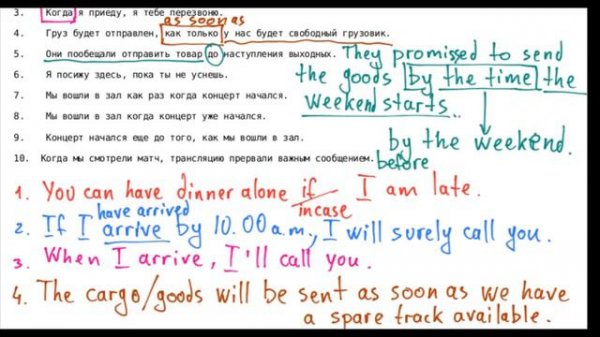 3. Когда я приеду, я тебе перезвоню.
as soon as
4. Груз будет отправлен, как только у нас будет свободный грузовик.
5. Они пообещали отправить товар до наступления выходных. They promissed to send
the goods by the time the
weekend starts..
6. Я посижу здесь, пока ты не уснешь.
7. Мы вошли в зал как раз когда концерт начался.
8. Мы вошли в зал когда концерт уже начался.
by the weekend.
9. Концерт начался еще до того, как мы вошли в зал.
before
10. Когда мы смотрели матч, трансляцию прервали важным сообщением.
1. You can have dinner alone if I am late.
incase
have arrived
2. If I arrive by 10.00 a.m., I will surely call you.
3. When I arrive, I'll call you.
4. The cargo/goods will be sent as soon as we have
a spare track available.